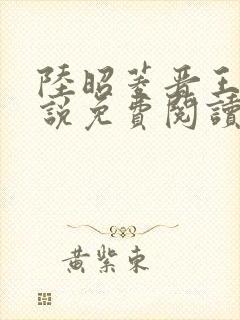 陸昭菱晋王
說免費閱讀
黃紫東